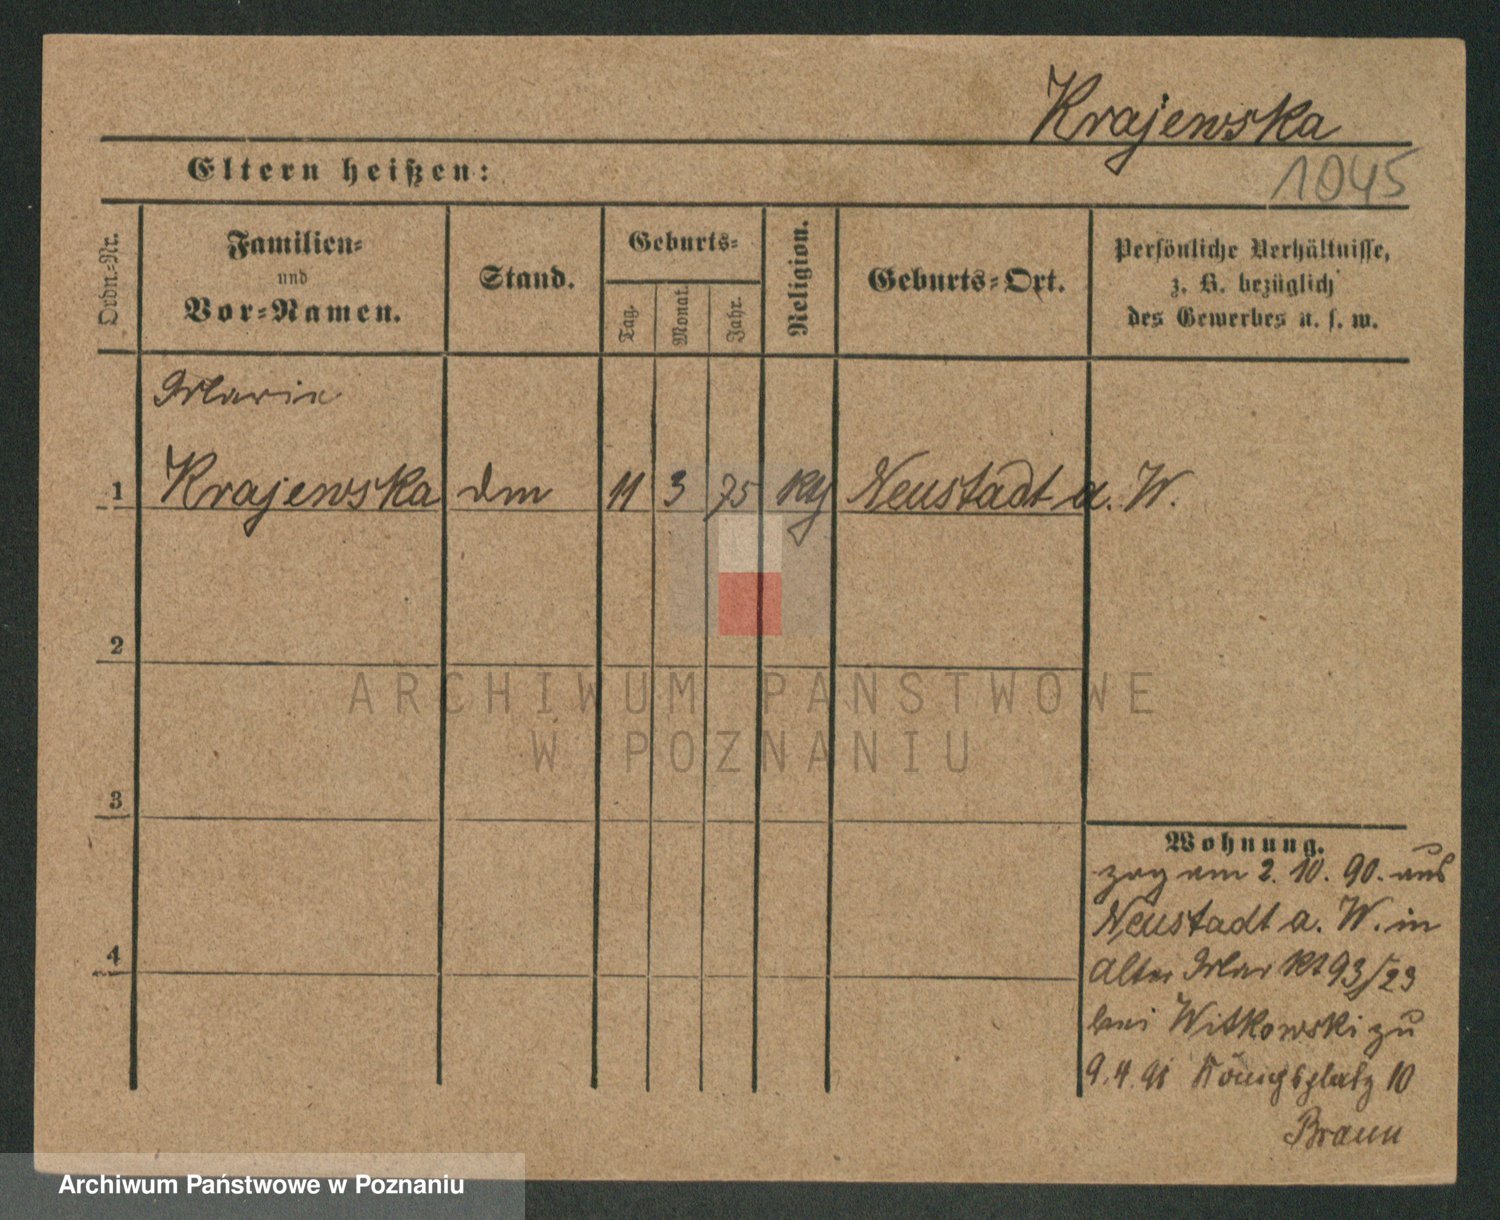 Krajewska
1045
Eltern heißen:
Ordn.-Nr.
Familien-
und
Vor-Namen.
Stand.
Geburts-
Tag.
Monat.
Jahr.
Religion.
Geburts-Ort.
Persönliche Verhältnisse,
z. B. bezüglich
des Gewerbes u. s. w.
Marie
1 Krajewska 11 3 75 kth Neustadt a. W.
2
3
4
Wohnung.
zog am 2. 10. 90. aus
Neustadt a. W. in
Alter Markt 93/
bei Witkowski zu
9.4.91 Königsplatz 10
Braun
ARCHIWUM PAŃSTWOWE
W POZNANIU
Archiwum Państwowe w Poznaniu